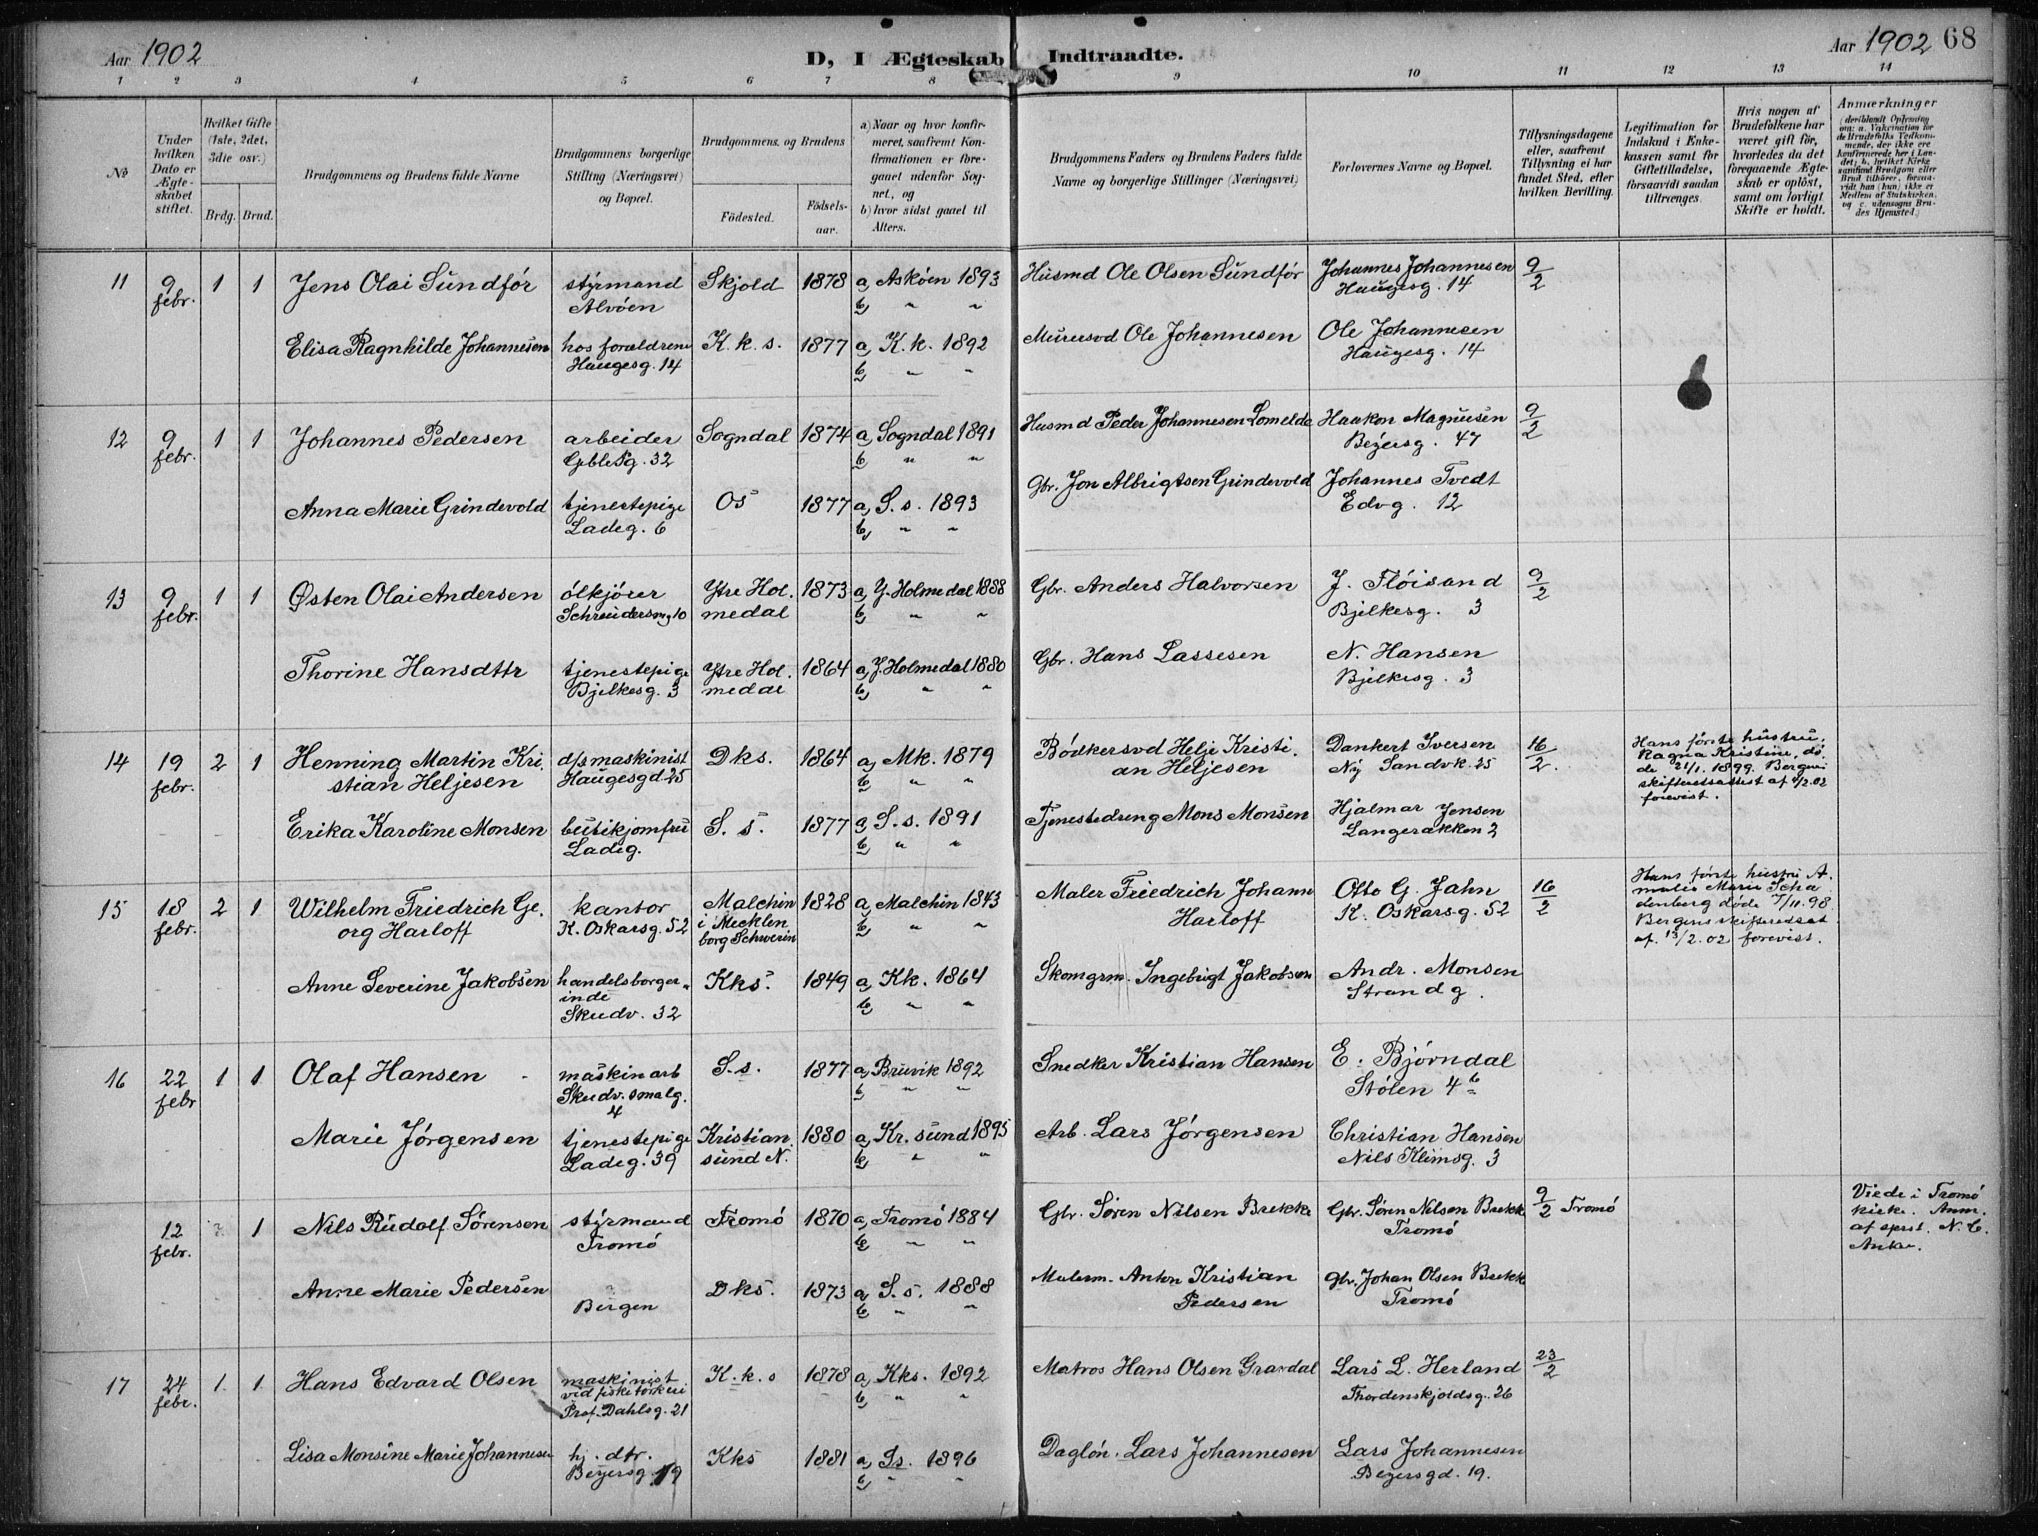 Aar 1902
D, I Ægteskab Indtraadte.
Aar 1902 68
1 2 3 4 5 6 7 8 9 10 11 12 13 14
No
Under hvilken Dato er Ægteskabet stiftet.
Hvilket Gifte (1ste, 2det, 3die osv.)
Brdg. Brud.
Brudgommens og Brudens fulde Navne
Brudgommens borgerlige Stilling (Næringsvei) og Bopæl.
Brudgommens og Brudens
Födested.
Födselsaar.
a) Naar og hvor konfirmeret, saafremt Konfirmationen er foregaaet udenfor Sognet, og
b) hvor sidst gaaet til Alters.
Brudgommens Faders og Brudens Faders fulde Navne og borgerlige Stillinger (Næringsvei)
Forlovernes Navne og Bopæl.
Tillysningsdagene eller, saafremt Tillysning ei har fundet Sted, efter hvilken Bevilling.
Legitimation for Indskud i Enkekassen samt for Giftetilladelse, forsaavidt saadan tiltrænges.
Hvis nogen af Brudefolkene har været gift för, hvorledes da det foregaaende Ægteskab er oplöst, samt om lovligt Skifte er holdt.
Anmærkninger
(deriblandt Oplysning om: a. Vakcination for de Brudefolks Vedkommende, der ikke ere konfirmerede her i Landet; b. hvilket Kirkesamfund Brudgom eller Brud tilhörer, forsaavidt han (hun) ikke er Medlem af Statskirken, og c. udensogns Brudes Hjemsted.)
11 9 febr. 1 1 Jens Olai Sundfør styrmand Alvöen Skjold 1878 a, Asköen 1893 b, " " Husmd Ole Olsen Sundfør Johannes Johannesen Haugesg. 14 9/2
Elisa Ragnhilde Johannesen hos forældrene Haugesg. 14 K. k. s. 1877 a, K. k. 1892 b, " " Murersvd Ole Johannesen Ole Johannesen Haugesg. 14
12 9 febr. 1 1 Johannes Pedersen arbeider Gbleg. 32 Sogndal 1874 a, Sogndal 1891 b, " " Husmd Peder Johannesen Lomelde Haakon Magnusen Beyersg. 47 9/2
Anna Marie Grindevold tjenestepige Ladeg. 6 Os 1877 a, S. s. 1893 b, " " Gbr. Jon Albrigtsen Grindevold Johannes Tvedt Edvg. 12
13 9 febr. 1 1 Østen Olai Andersen ölkjörer Schreudersmg 10 Ytre Holmedal 1873 a, Y. Holmedal 1888 b, " " Gbr. Anders Halvorsen J. Flöisand Bjelkesg. 3 9/2
Thorine Hansdttr tjenestepige Bjelkesg. 3 Ytre Holmedal 1864 a, Y. Holmedal 1880 b, " " Gbr. Hans Lassesen N. Hansen Bjelkesg. 3
14 19 febr. 2 1 Henning Martin Kristian Heljesen d/s maskinist Haugesgd. 25 Dks. 1864 a, Mk. 1879 b, " " Bödkersvd Helje Kristian Heljesen Dankert Iversen Ny Sandvk. 25 16/2.
Hans förste hustru, Ragna Kristine, döde 21/1. 1899. Bergens skifteretsattest af 4/2.02 forevist.
Erika Karoline Monsen butikjomfru Ladeg. S. s. 1877 a, S. s. 1891 b, " " Tjenestedreng Mons Monsen Hjalmar Jensen Langerækken 2
15 18 febr. 2 1 Wilhelm Friedrich Georg Harloff kantor K. Oskarsg. 52 Malchin i Mecklenborg Schwerin 1828 a, Malchin 1843 b, " " Maler Friedrich Johann Harloff Otto G. Jahn K. Oskarsg. 52 16/2
Hans förste hustru Amalie Marie Schadenberg döde 7/11.98. Bergens skifteretsat af. 13/2.02 forevist.
Anne Severine Jakobsen handelsborgerinde Skudv. 32 Kks. 1849 a, Kk. 1864 b, " " Skomgrm. Ingebrigt Jakobsen Andr. Monsen Strandg.
16 22 febr 1 1 Olaf Hansen maskinarb Skudv. smalg. 4 S. s. 1877 a, Bruvik 1892 b, " " Snedker Kristian Hansen E. Björndal Stölen 4 b
Marie Jörgensen tjenestepige Ladeg. 39 Kristiansund N. 1880 a, Kr. sund 1895 b, " " Arb. Lars Jörgensen Christian Hansen Nils Klimsg. 3
12 febr. ? 1 Nils Rudolf Sörensen styrmand Tromö Tromö 1870 a, Tromö 1884 b, " " Gbr. Sören Nilsen Brekke Gbr. Sören Nilsen Brekk Tromö 9/2 Tromö
Viede i Tromö kirke. Anm. af sprst. N. C. Anke.
Anne Marie Pedersen ? Bergen Dks. 1873 a, S. s. 1888 b, " " Malerm. Anton Kristian Pedersen Gbr. Johan Olsen Brekk Tromö
17 24 febr. 1. 1. Hans Edvard Olsen maskinist ved fisketörkeri Prof. Dahlsg. 21 K. k. s 1878 a, Kks. 1892 b, " " Matros Hans Olsen Gravdal Lars L. Herland Thordenskjoldsg. 26 23/2
Lisa Monsine Marie Johannesen hj. dtr. Beyersg. 19 Kks 1881 a, Ss. 1896 b, " " Daglön. Lars Johannesen Lars Johannesen Beyersgd. 19.